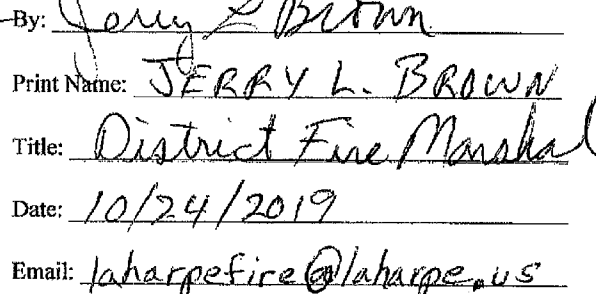 By: Jerry L Brown
Print Name: JERRY L. BROWN
Title: District Fire Marshal
Date: 10/24/2019
Email: laharpefire@laharpe.us